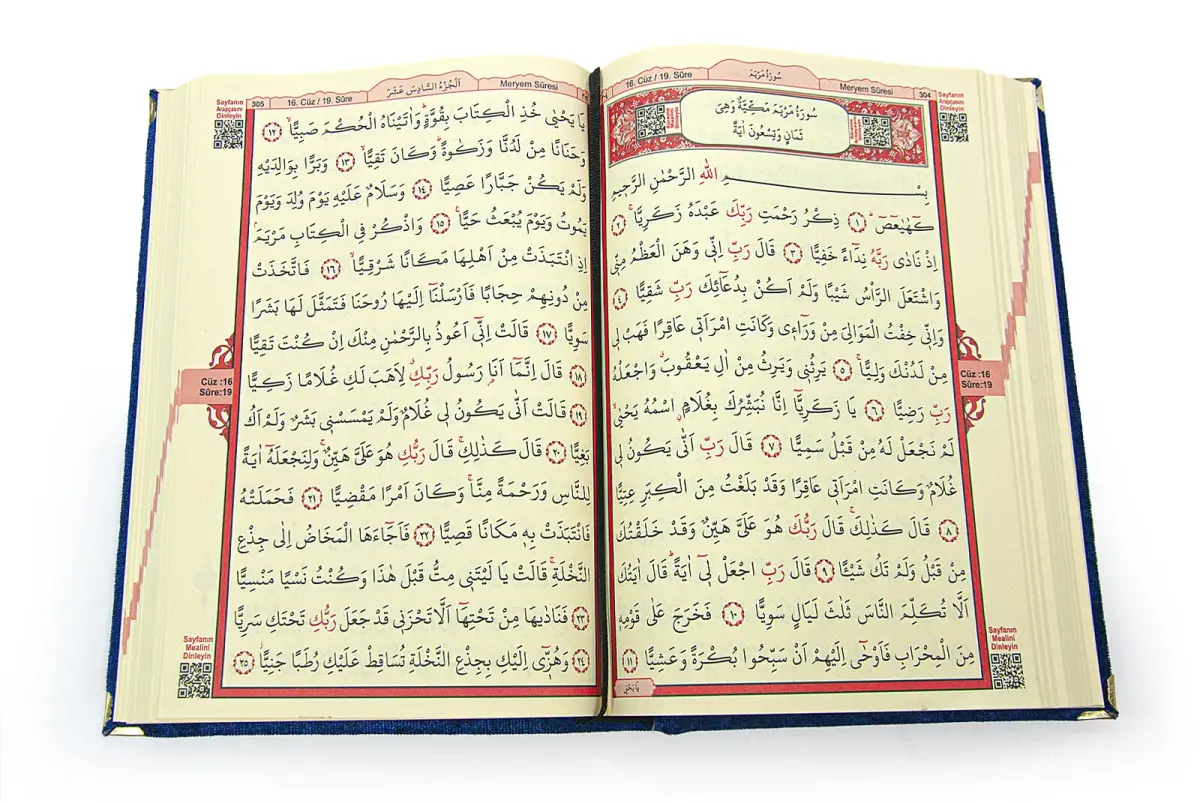 16. Cüz / 19. Sûre
سُورَةُ مَرْيَمَ
Meryem Sûresi
304
سُورَةُ مَرْيَمَ مَكِّيَّةٌ وَهِيَ
ثَمَانٍ وَتِسْعُونَ اٰيَةً
بِسْمِ اللهِ الرَّحْمٰنِ الرَّحِيمِ
كٓهٰيٰعٓصٓ ﴿١﴾ ذِكْرُ رَحْمَتِ رَبِّكَ عَبْدَهُ زَكَرِيَّا ﴿٢﴾
اِذْ نَادٰى رَبَّهُ نِدَٓاءً خَفِيًّا ﴿٣﴾ قَالَ رَبِّ اِنّٖي وَهَنَ الْعَظْمُ مِنّٖي
وَاشْتَعَلَ الرَّأْسُ شَيْبًا وَلَمْ اَكُنْ بِدُعَٓائِكَ رَبِّ شَقِيًّا ﴿٤﴾
وَاِنّٖي خِفْتُ الْمَوَالِيَ مِنْ وَرَٓاءٖي وَكَانَتِ امْرَاَتٖي عَاقِرًا فَهَبْ لٖي
مِنْ لَدُنْكَ وَلِيًّا ﴿٥﴾ يَرِثُنٖي وَيَرِثُ مِنْ اٰلِ يَعْقُوبَ وَاجْعَلْهُ
رَبِّ رَضِيًّا ﴿٦﴾ يَا زَكَرِيَّٓا اِنَّا نُبَشِّرُكَ بِغُلَامٍ اسْمُهُ يَحْيٰى
لَمْ نَجْعَلْ لَهُ مِنْ قَبْلُ سَمِيًّا ﴿٧﴾ قَالَ رَبِّ اَنّٰى يَكُونُ لٖي
غُلَامٌ وَكَانَتِ امْرَاَتٖي عَاقِرًا وَقَدْ بَلَغْتُ مِنَ الْكِبَرِ عِتِيًّا
﴿٨﴾ قَالَ كَذٰلِكَ قَالَ رَبُّكَ هُوَ عَلَيَّ هَيِّنٌ وَقَدْ خَلَقْتُكَ
مِنْ قَبْلُ وَلَمْ تَكُ شَيْـًٔا ﴿٩﴾ قَالَ رَبِّ اجْعَلْ لٖٓي اٰيَةً قَالَ اٰيَتُكَ
اَلَّا تُكَلِّمَ النَّاسَ ثَلٰثَ لَيَالٍ سَوِيًّا ﴿١٠﴾ فَخَرَجَ عَلٰى قَوْمِهٖ
مِنَ الْمِحْرَابِ فَاَوْحٰٓى اِلَيْهِمْ اَنْ سَبِّحُوا بُكْرَةً وَعَشِيًّا ﴿١١﴾
يَا يَحْيٰى
Sayfanın
Arapçasını
Dinleyin
Cüz :16
Sûre:19
Sayfanın
Mealini
Dinleyin
305
16. Cüz / 19. Sûre
اَلْجُزْءُ السَّادِسَ عَشَرَ
Meryem Sûresi
يَا يَحْيٰى خُذِ الْكِتَابَ بِقُوَّةٍ وَاٰتَيْنَاهُ الْحُكْمَ صَبِيًّا ﴿١٢﴾
وَحَنَانًا مِنْ لَدُنَّا وَزَكٰوةً وَكَانَ تَقِيًّا ﴿١٣﴾ وَبَرًّا بِوَالِدَيْهِ
وَلَمْ يَكُنْ جَبَّارًا عَصِيًّا ﴿١٤﴾ وَسَلَامٌ عَلَيْهِ يَوْمَ وُلِدَ وَيَوْمَ
يَمُوتُ وَيَوْمَ يُبْعَثُ حَيًّا ﴿١٥﴾ وَاذْكُرْ فِي الْكِتَابِ مَرْيَمَ
اِذِ انْتَبَذَتْ مِنْ اَهْلِهَا مَكَانًا شَرْقِيًّا ﴿١٦﴾ فَاتَّخَذَتْ
مِنْ دُونِهِمْ حِجَابًا فَاَرْسَلْنَٓا اِلَيْهَا رُوحَنَا فَتَمَثَّلَ لَهَا بَشَرًا
سَوِيًّا ﴿١٧﴾ قَالَتْ اِنّٖٓي اَعُوذُ بِالرَّحْمٰنِ مِنْكَ اِنْ كُنْتَ تَقِيًّا
﴿١٨﴾ قَالَ اِنَّمَٓا اَنَا۬ رَسُولُ رَبِّكِ لِاَهَبَ لَكِ غُلَامًا زَكِيًّا
﴿١٩﴾ قَالَتْ اَنّٰى يَكُونُ لٖي غُلَامٌ وَلَمْ يَمْسَسْنٖي بَشَرٌ وَلَمْ اَكُ
بَغِيًّا ﴿٢٠﴾ قَالَ كَذٰلِكِ قَالَ رَبُّكِ هُوَ عَلَيَّ هَيِّنٌ وَلِنَجْعَلَهُٓ اٰيَةً
لِلنَّاسِ وَرَحْمَةً مِنَّا وَكَانَ اَمْرًا مَقْضِيًّا ﴿٢١﴾ فَحَمَلَتْهُ
فَانْتَبَذَتْ بِهٖ مَكَانًا قَصِيًّا ﴿٢٢﴾ فَاَجَٓاءَهَا الْمَخَاضُ اِلٰى جِذْعِ
النَّخْلَةِ قَالَتْ يَا لَيْتَنٖي مِتُّ قَبْلَ هٰذَا وَكُنْتُ نَسْيًا مَنْسِيًّا
﴿٢٣﴾ فَنَادٰيهَا مِنْ تَحْتِهَٓا اَلَّا تَحْزَنٖي قَدْ جَعَلَ رَبُّكِ تَحْتَكِ سَرِيًّا
﴿٢٤﴾ وَهُزّٖٓي اِلَيْكِ بِجِذْعِ النَّخْلَةِ تُسَاقِطْ عَلَيْكِ رُطَبًا جَنِيًّا ﴿٢٥﴾
Sayfanın
Arapçasını
Dinleyin
Cüz :16
Sûre:19
Sayfanın
Mealini
Dinleyin